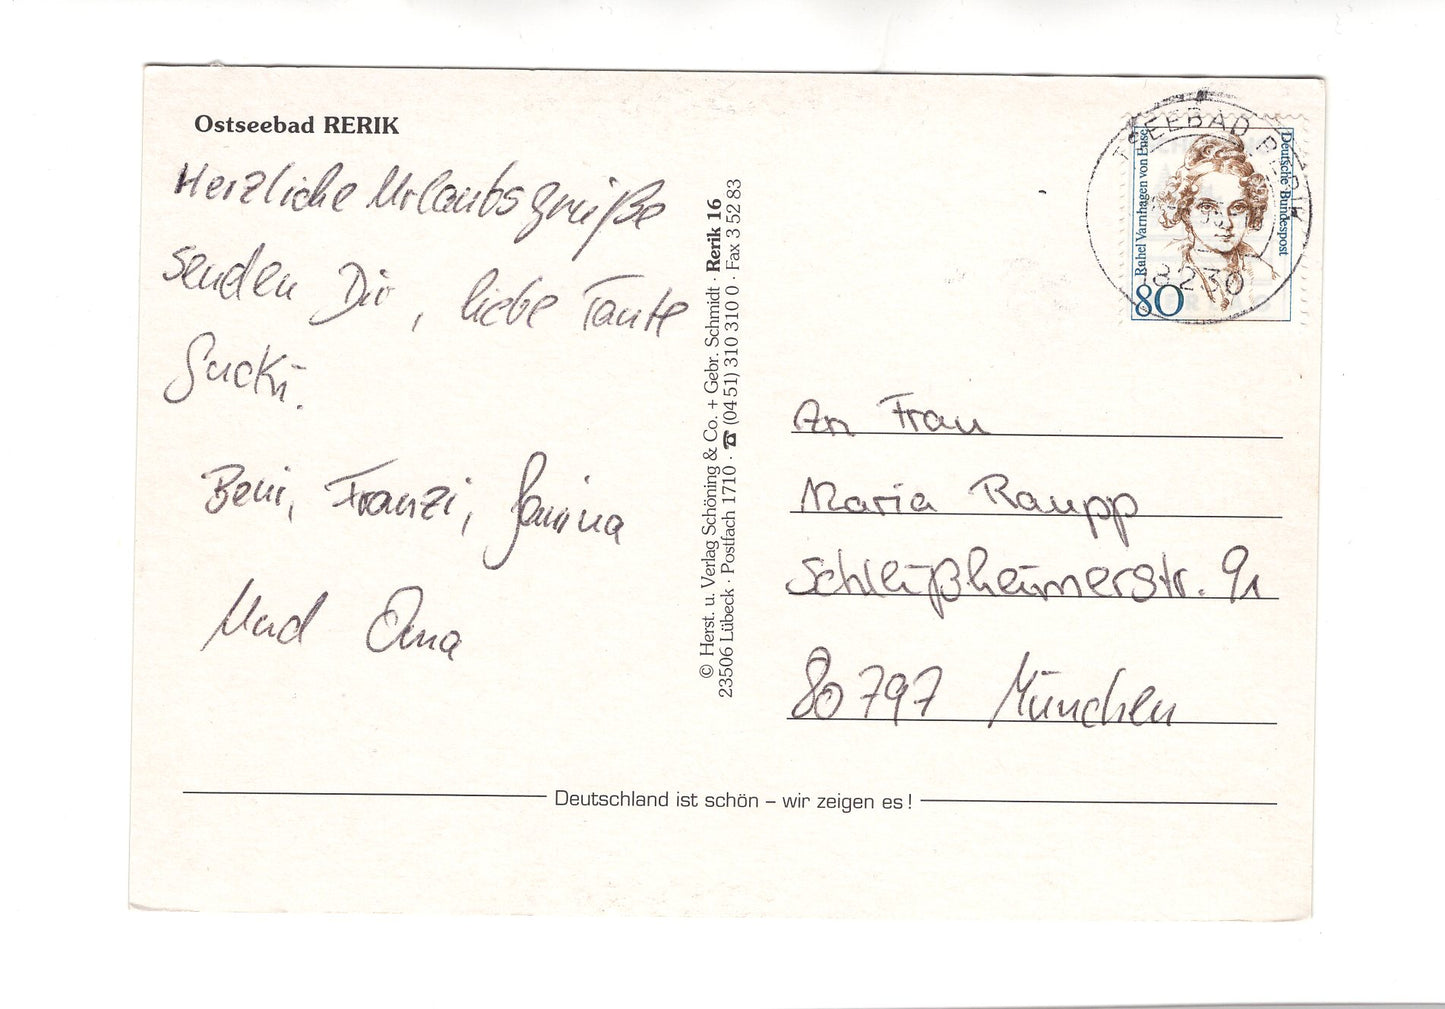 Ostseebad RERIK
Herzliche Urlaubsgrüße
senden Dir, liebe Tante
Sucki.
Beni, Franzi, Janina
Und Oma
© Herst. u. Verlag Schöning & Co. + Gebr. Schmidt · Rerik 16
23506 Lübeck · Postfach 1710 · ☎ (04 51) 310 310 0 · Fax 3 52 83
TSEEBAD RERIK
18230
Rahel Varnhagen von Ense
Deutsche Bundespost
80
An Frau
Maria Raupp
Schleißheimerstr. 91
80797 München
Deutschland ist schön – wir zeigen es!